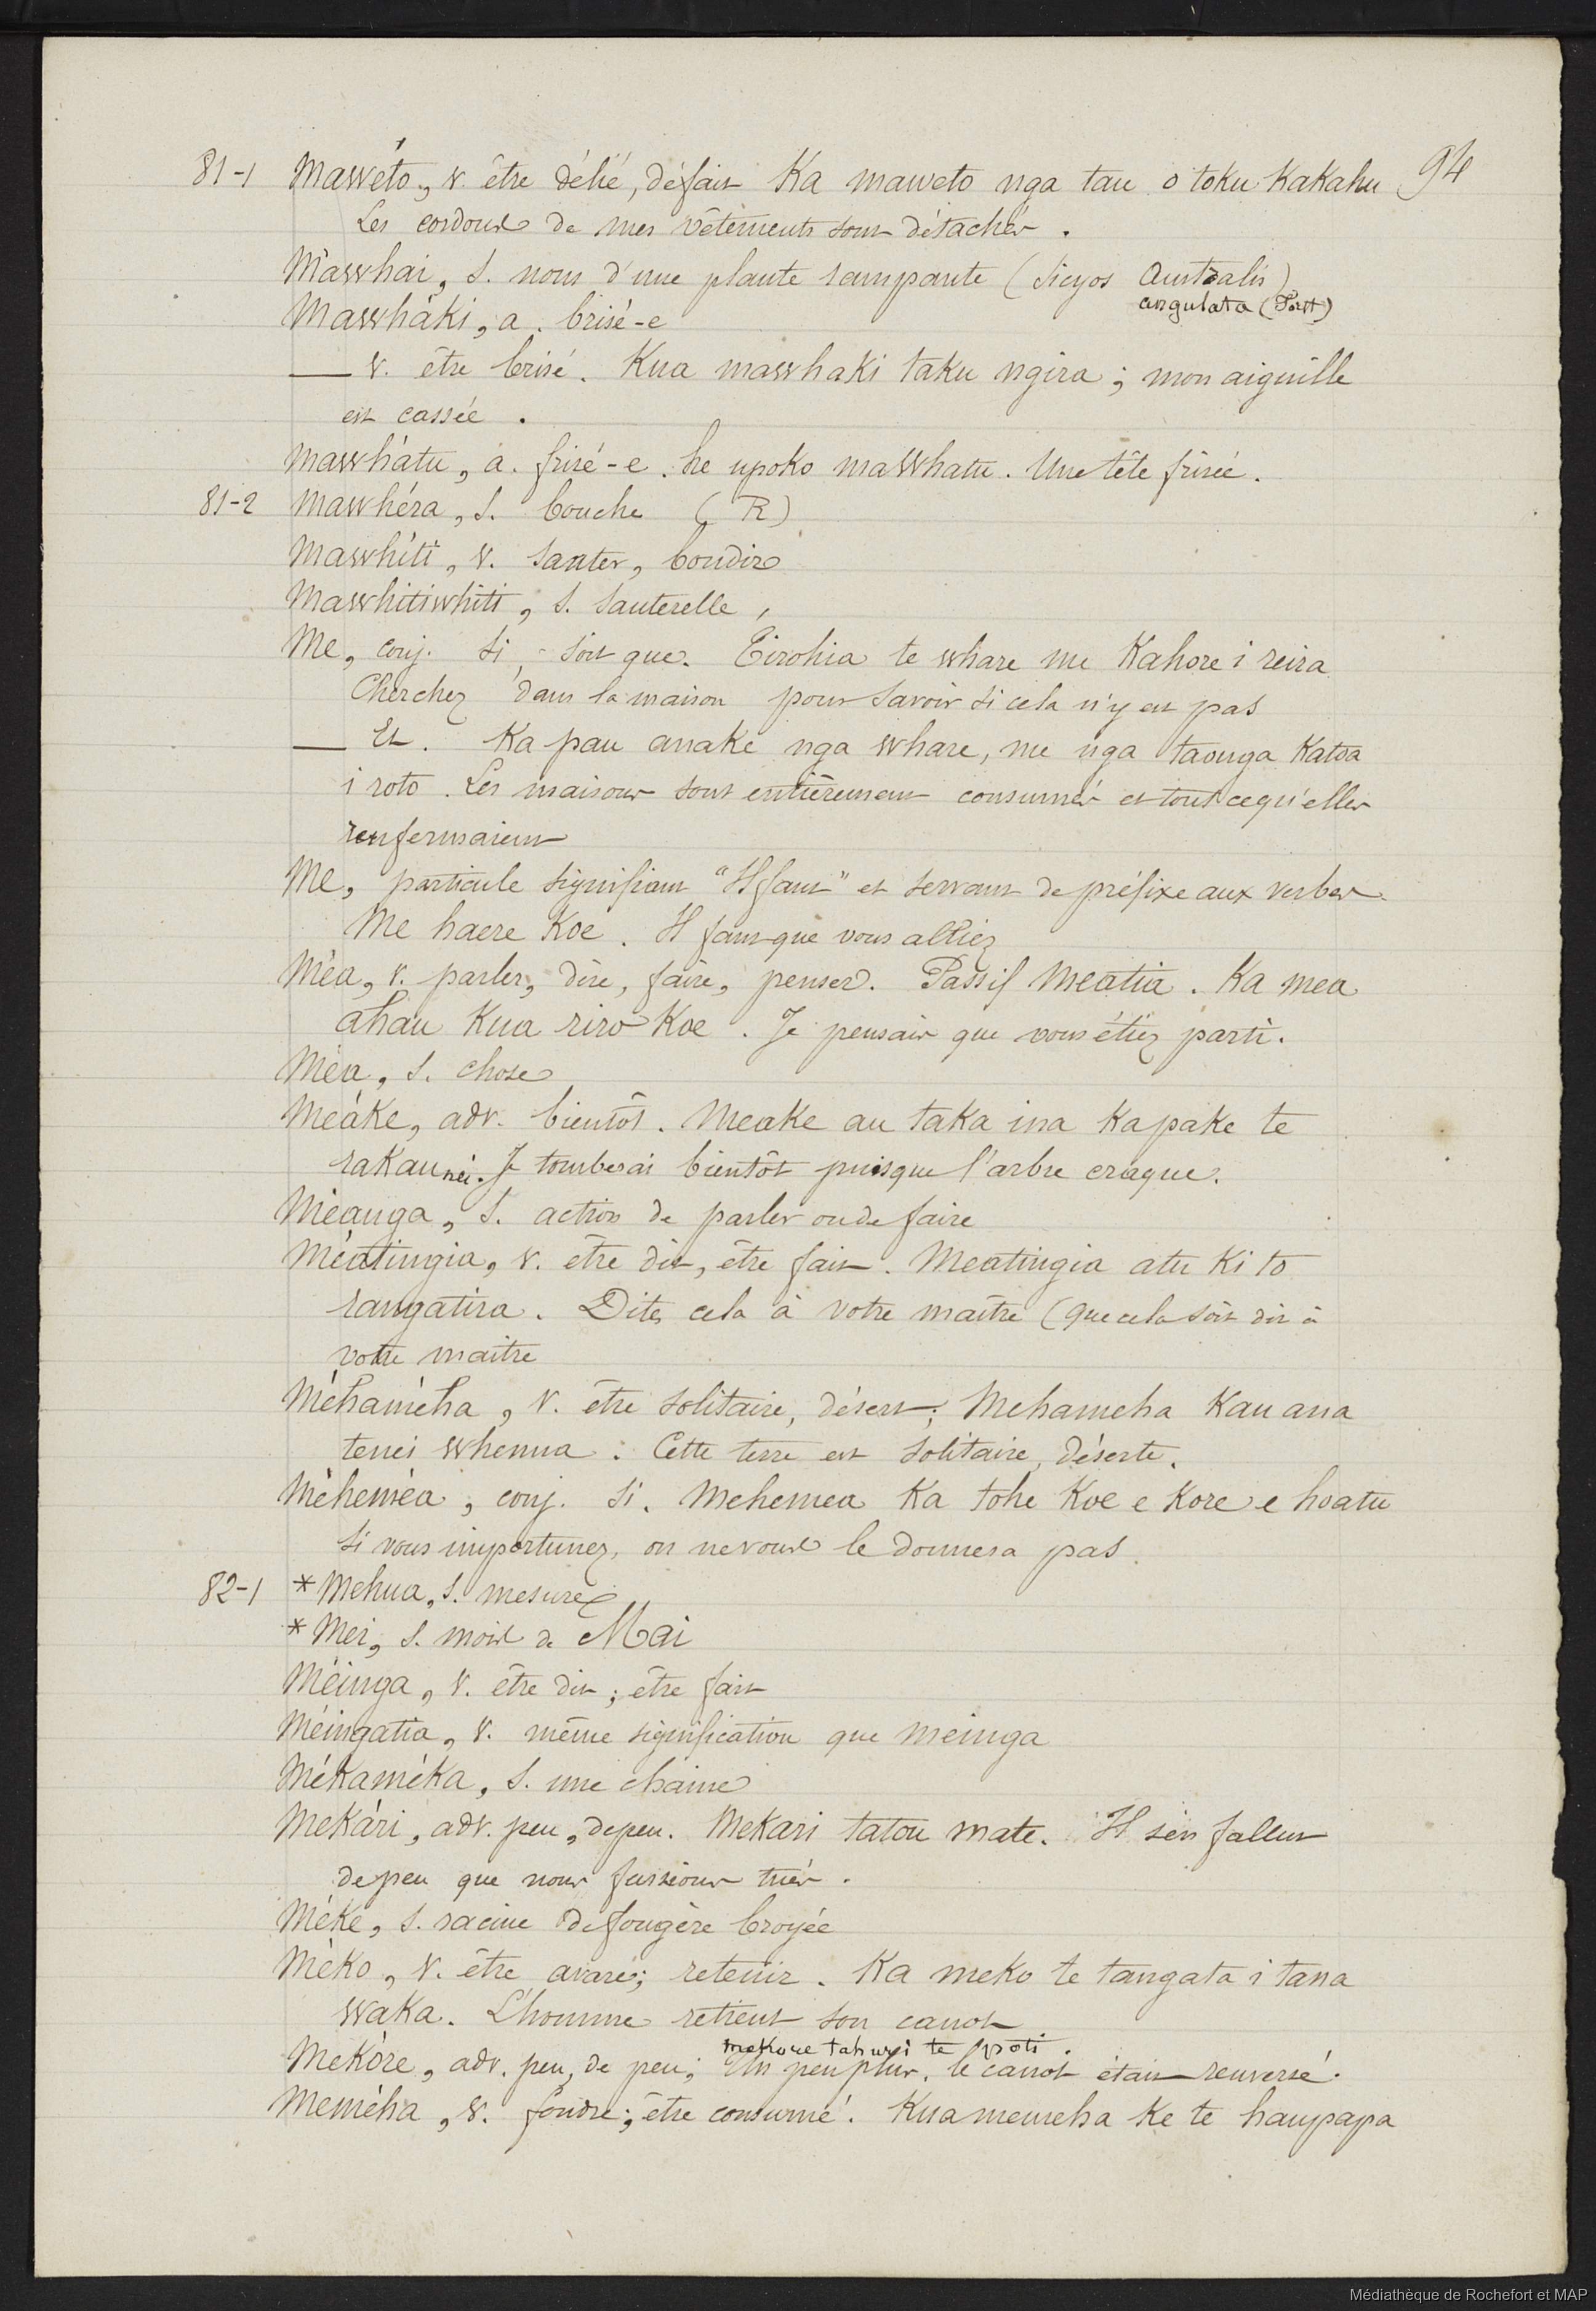 81-1 Mawéto, v. être délié, défait Ka maweto nga tau o toku Kakahu 94
Les cordons de mes vêtements sont détachés.
Mawhai, s. nom d'une plante rampante (Sicyos Australis)
angulata (Forst)
Mawháki, a. brisé-e
— v. être brisé. Kua mawhaki taku ngira; mon aiguille
est cassée.
Mawhátu, a. frisé-e. he upoko mawhatu. Une tête frisée.
81-2 Mawhéra, s. bouche (R)
Mawhíti, v. sauter, bondir
Mawhitiwhiti, s. Sauterelle,
Me, conj. Si, soit que. Tirohia te whare me Kahore i reira
Cherchez dans la maison pour savoir si cela n'y est pas
— Et. Ka pau anake nga whare, me nga taonga Katoa
i roto. Les maisons sont entièrement consumés et tout ce qu'elles
renfermaient
Me, particule signifiant "Il faut" et servant de préfixe aux verbes.
Me haere Koe. Il faut que vous alliez
Méa, v. parler, dire, faire, penser. Passif Meatia. Ka mea
ahau Kua riro Koe. Je pensais que vous étiez parti.
Méa, s. chose
Meáke, adv. bientôt. Meake au taka ina Ka pake te
rakau nei. Je tomberai bientôt puisque l'arbre craque.
Méanga, s. action de parler ou de faire
Méatingia, v. être dit, être fait. Meatingia atu Ki to
rangatira. Dites cela à votre maître (que cela soit dit à
votre maitre
Méhaméha, v. être solitaire, désert; Mehameha Kau ana
tenei whenua. Cette terre est solitaire, déserte.
Méheméa, conj. Si. Mehemea Ka tohe Koe e Kore e hoatu
Si vous importunez, on ne vous le donnera pas
82-1 * Mehua, s. mesure
* Mei, s. mois de Mai
Méinga, v. être dit; être fait
Méingatia, v. même signification que meinga
Mékaméka, s. une chaine
Mekári, adv. peu, de peu. Mekari tatou mate. Il s'en fallut
de peu que nous fussions tués.
Méke, s. racine de fougère broyée
Méko, v. être avare; retenir. Ka meko te tangata i tana
waka. L'homme retient son canot
mekore tahuri te poti.
Mekóre, adv. peu, de peu; Un peu plus, le canot était renversé.
Meméha, v. fondre; être consumé. Kua memeha Ke te haupapa
Médiathèque de Rochefort et MAP